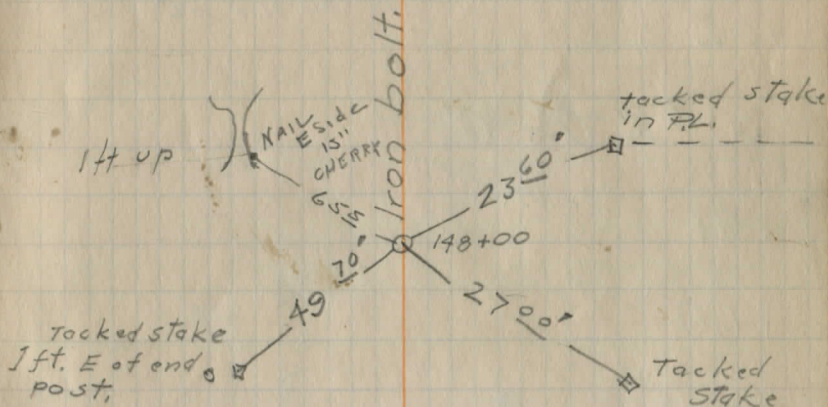 Iron bolt.
1ft up
NAIL
E side
15"
CHERRY
655
tacked stake
in P.L.
23 60'
148+00
49 70'
27 00'
Tacked stake
1ft. E of end
post.
Tacked
Stake